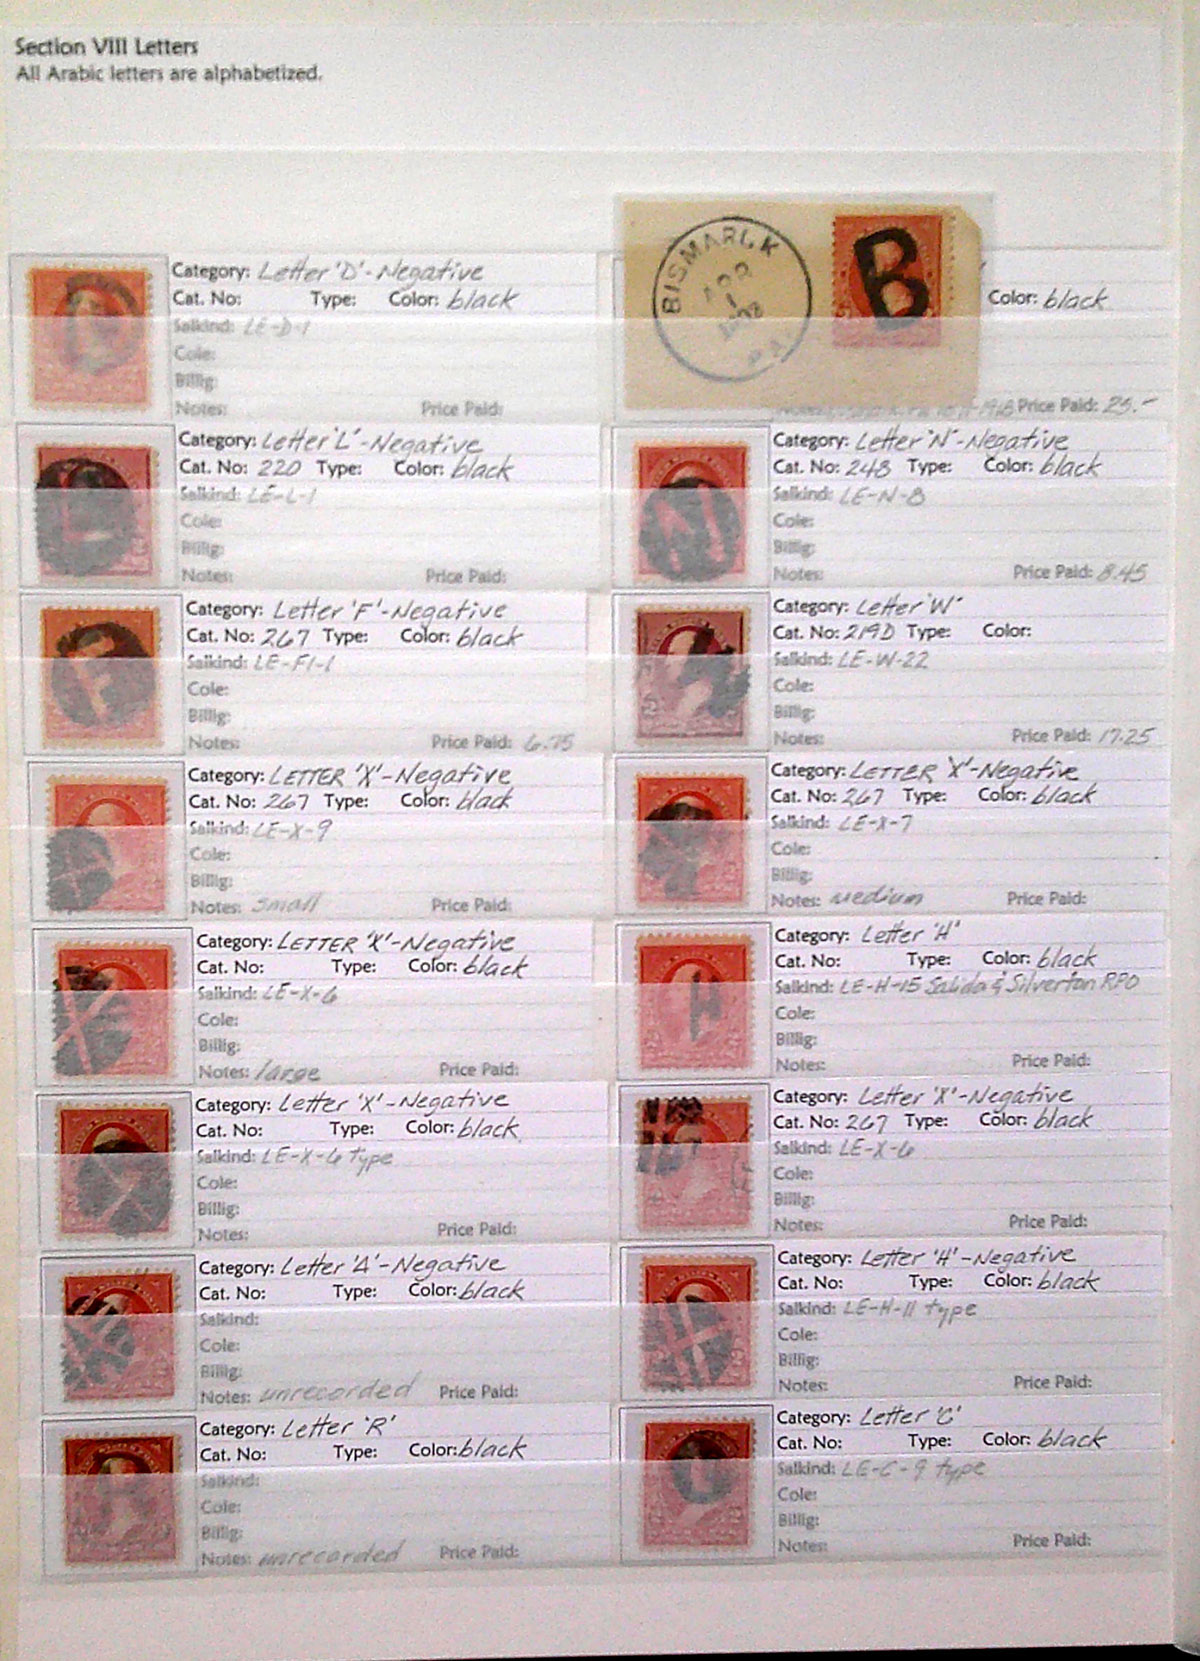 Section VIII Letters
All Arabic letters are alphabetized.
Category: Letter 'D'-Negative
Cat. No: Type: Color: black
Salkind: LE-D-1
Cole:
Billig:
Notes: Price Paid:
BISMARCK
APR
1
PA
B
Color: black
Price Paid: 25.-
Category: Letter 'L'-Negative
Cat. No: 220 Type: Color: black
Salkind: LE-L-1
Cole:
Billig:
Notes: Price Paid:
Category: Letter 'N'-Negative
Cat. No: 248 Type: Color: black
Salkind: LE-N-8
Cole:
Billig:
Notes: Price Paid: 8.45
Category: Letter 'F'-Negative
Cat. No: 267 Type: Color: black
Salkind: LE-F1-1
Cole:
Billig:
Notes: Price Paid: 6.75
Category: Letter 'W'
Cat. No: 219D Type: Color:
Salkind: LE-W-22
Cole:
Billig:
Notes: Price Paid: 17.25
Category: LETTER 'X'-Negative
Cat. No: 267 Type: Color: black
Salkind: LE-X-9
Cole:
Billig:
Notes: small Price Paid:
Category: LETTER 'X'-Negative
Cat. No: 267 Type: Color: black
Salkind: LE-X-7
Cole:
Billig:
Notes: medium Price Paid:
Category: LETTER 'X'-Negative
Cat. No: Type: Color: black
Salkind: LE-X-6
Cole:
Billig:
Notes: large Price Paid:
Category: Letter 'H'
Cat. No: Type: Color: black
Salkind: LE-H-15 Salida & Silverton RPO
Cole:
Billig:
Notes: Price Paid:
Category: Letter 'X'-Negative
Cat. No: Type: Color: black
Salkind: LE-X-6 type
Cole:
Billig:
Notes: Price Paid:
Category: Letter 'X'-Negative
Cat. No: 267 Type: Color: black
Salkind: LE-X-6
Cole:
Billig:
Notes: Price Paid:
Category: Letter 'A'-Negative
Cat. No: Type: Color: black
Salkind:
Cole:
Billig:
Notes: unrecorded Price Paid:
Category: Letter 'H'-Negative
Cat. No: Type: Color: black
Salkind: LE-H-11 type
Cole:
Billig:
Notes: Price Paid:
Category: Letter 'R'
Cat. No: Type: Color: black
Salkind:
Cole:
Billig:
Notes: unrecorded Price Paid:
Category: Letter 'C'
Cat. No: Type: Color: black
Salkind: LE-C-9 type
Cole:
Billig:
Notes: Price Paid: